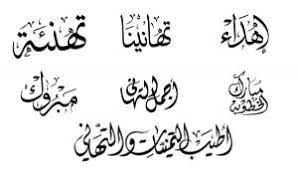 إهداء تهانينا تهنئة
مبارك الخطوبة أجمل التهاني مبروك
أطيب التمنيات والتهاني